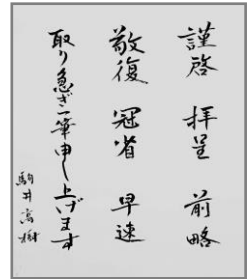 謹啓 拝呈 前略
敬復 冠省 早速
取り急ぎ一筆申し上げます
駒井高樹